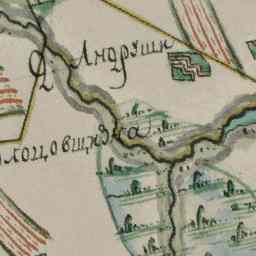 Д. Андрушк
лоцовщизна